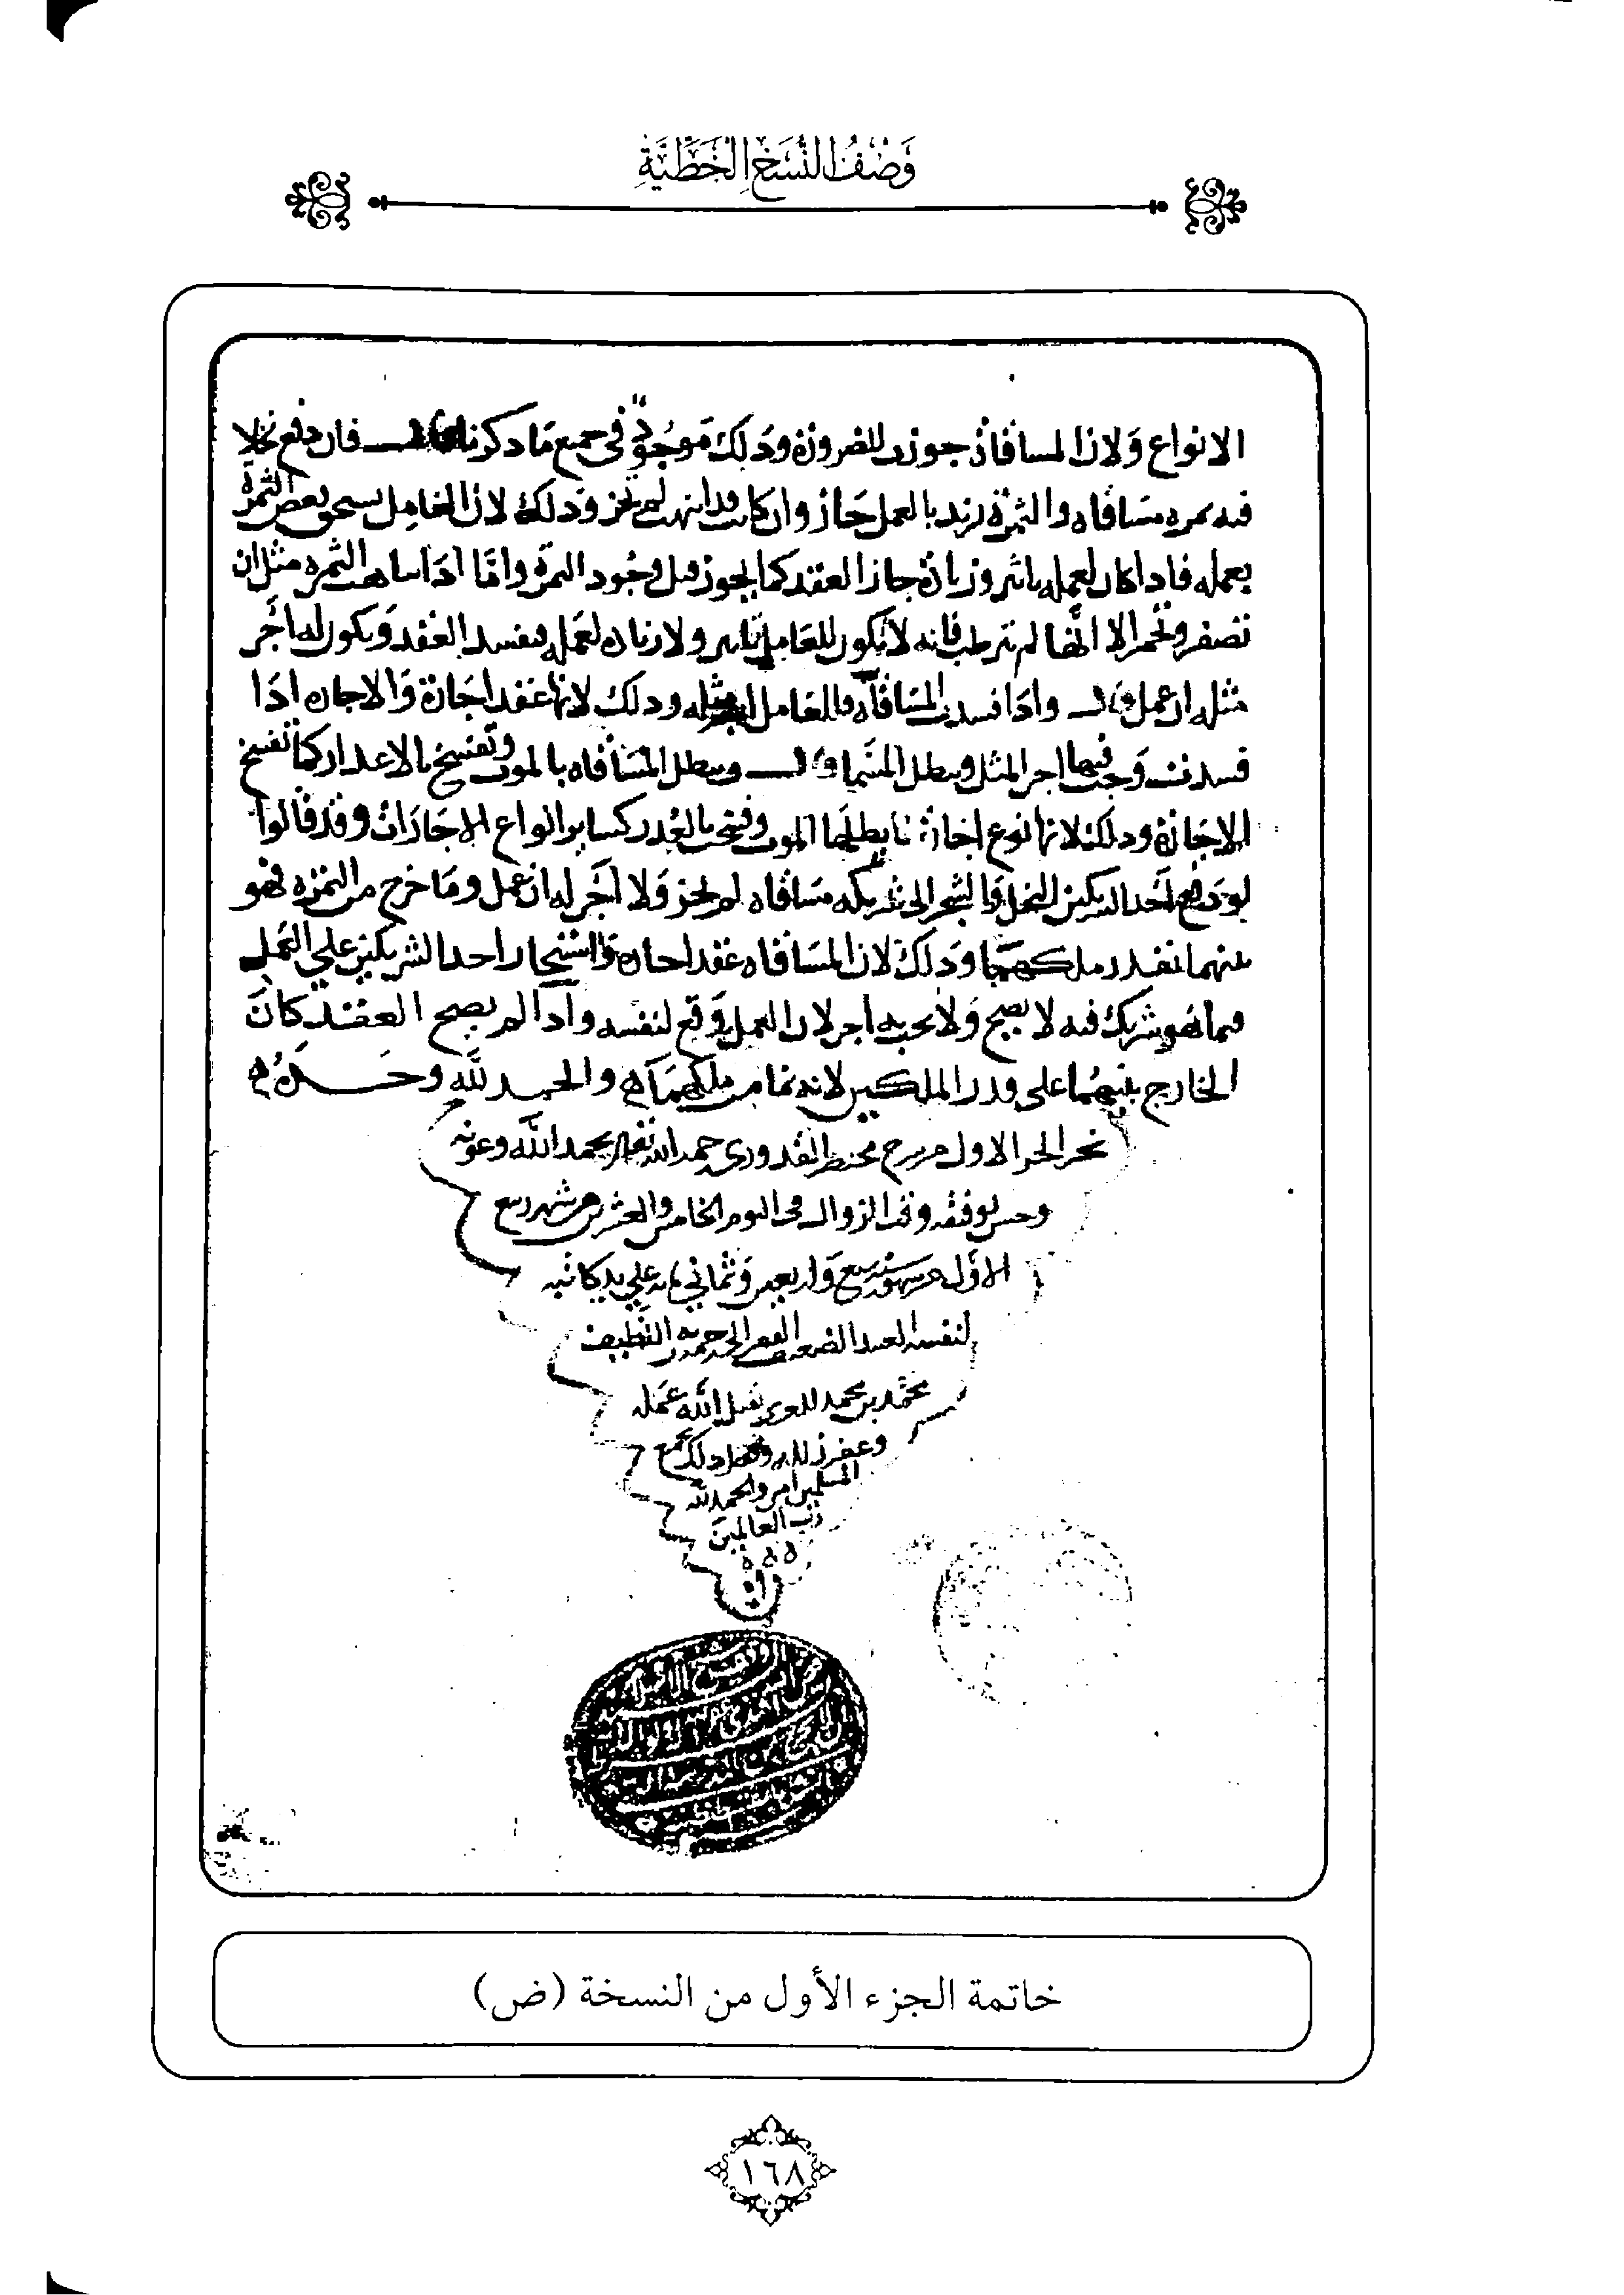 وَصْفُ النُّسَخِ الْخَطِّيَّةِ
الانواع ولان المساقاة جوزت للضرورة وذلك موجود في جميع ما ذكرنا قال فان دفع نخلا
فيه ثمره مساقاه والثمرة تزيد بالعمل جاز وان كانت قد انتهت لم تجز وذلك لان العامل يستحق بعض الثمرة
بعمله فاذا كان لعمله تاثير وزيادة جاز العقد كما يجوز قبل وجود الثمرة واما اذا تناهت الثمره مثل ان
تصفر وتحمر الا انها لم ترطب فانه لا يكون للعامل تاثير ولا زياده لعمله فيفسد العقد ويكون له اجر
مثله ان عمل قال واذا فسدت المساقاة فللعامل اجر مثله وذلك لانها عقد اجازة والاجاره اذا
فسدت وجب فيها اجر المثل وبطل المسما قال وتبطل المساقاه بالموت وتفسخ بالاعذار كما تفسخ
الاجازة وذلك لانها نوع اجازة يبطلها الموت وفسخت بالعذر كساير انواع الاجازات وقد قالوا
لو دفع احد الشريكين النخل والشجر الى شريكه مساقاه لم يجز ولا اجر له ان عمل وما خرج من الثمره فهو
بينهما بقدر ملكهما وذلك لان المساقاه عقد اجاره واستيجار احد الشريكين علي العمل
فيما هو شريك فيه لا يصح ولا يجب به اجر لان العمل وقع لنفسه واذا لم يصح العقد كان
الخارج بينهما على قدر الملكين لانه نما من ملكهما والحمد لله وحده
نجز الجز الاول من شرح مختصر القدوري رحمه الله تعالى بحمد الله وعونه
وحسن توفيقه وقت الزوال في اليوم الخامس والعشرين من شهر ربيع
الاول من شهور سنة تسع واربعين وثماني مايه علي يد كاتبه
لنفسه العبد الضعيف الفقير الى رحمة ربه اللطيف
محمد بن محمد تقبل الله عمله
وغفر ذلله وفعل ذلك بجميع
المسلمين امين والحمد لله
رب العالمين
خاتمة الجزء الأول من النسخة (ض)
١٦٨